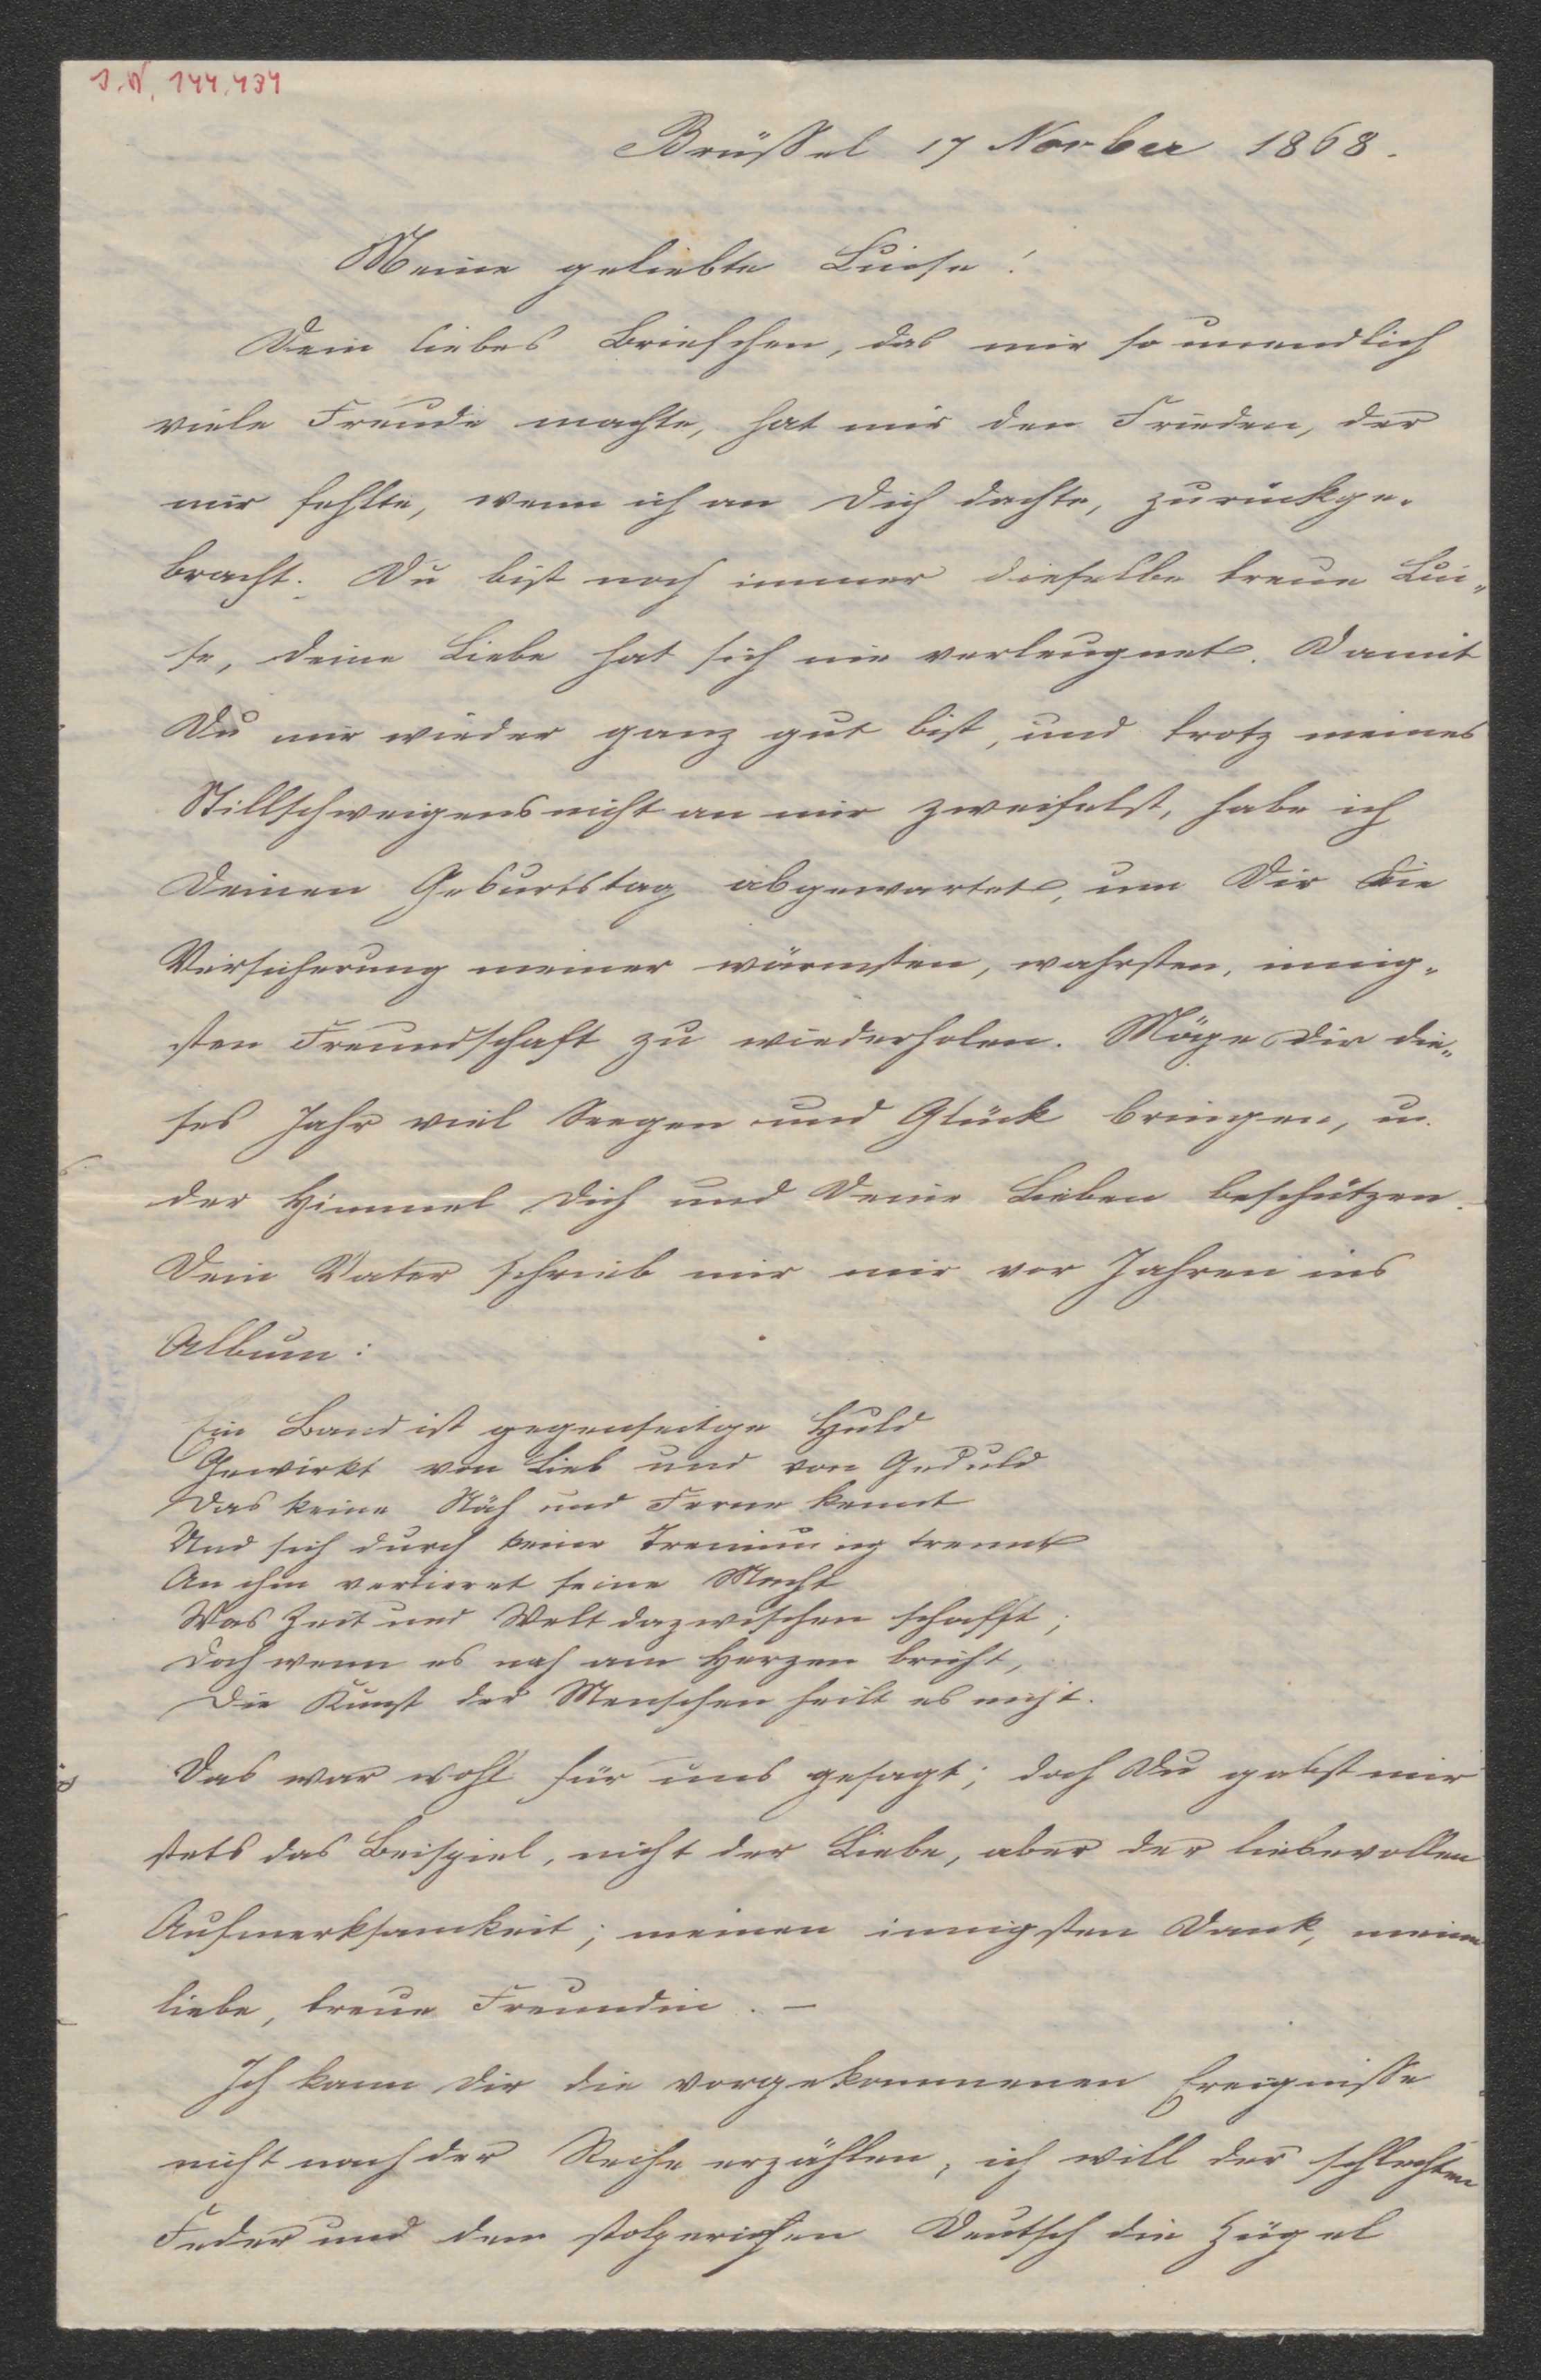 I.N. 144.434
Brüssel 17 Novber 1868.
Meine geliebte Luise!
Dein liebes Briefchen, das mir so unendlich
viele Freude machte, hat mir den Frieden, der
mir fehlte, wenn ich an Dich dachte, zurückge-
bracht. Du bist noch immer dieselbe treue Lui-
se, deine Liebe hat sich nie verleugnet. Damit
Du mir wieder ganz gut bist, und trotz meines
Stillschweigens nicht an mir zweifelst, habe ich
Deinen Geburtstag abgewartet, um Dir die
Versicherung meiner wärmsten, wahrsten, innig-
sten Freundschaft zu wiederholen. Möge Dir die-
ses Jahr viel Seegen und Glück bringen, u.
der Himmel Dich und Deine Lieben beschützen.
Dein Vater schrieb mir mir vor Jahren ins
Album:
Ein Band ist gegenseitge Huld
Gewirkt von Lieb und von Geduld
Das keine Näh und Ferne kennt
Und sich durch keine Trennung trennt
An ihm verlieret seine Macht
Was Zeit und Welt dazwischen schafft;
Doch wenn es nah am Herzen bricht,
Die Kunst der Menschen heilt es nicht.
Das war wohl für uns gesagt; doch Du gabst mir
stets das Beispiel, nicht der Liebe, aber der liebevollen
Aufmerksamkeit; meinen innigsten Dank, meine
liebe, treue Freundin. –
Ich kann Dir die vorgekommenen Ereignisse
nicht nach der Reihe erzählen, ich will der schlechten
Feder und dem stolperichen Deutsch die Zügel